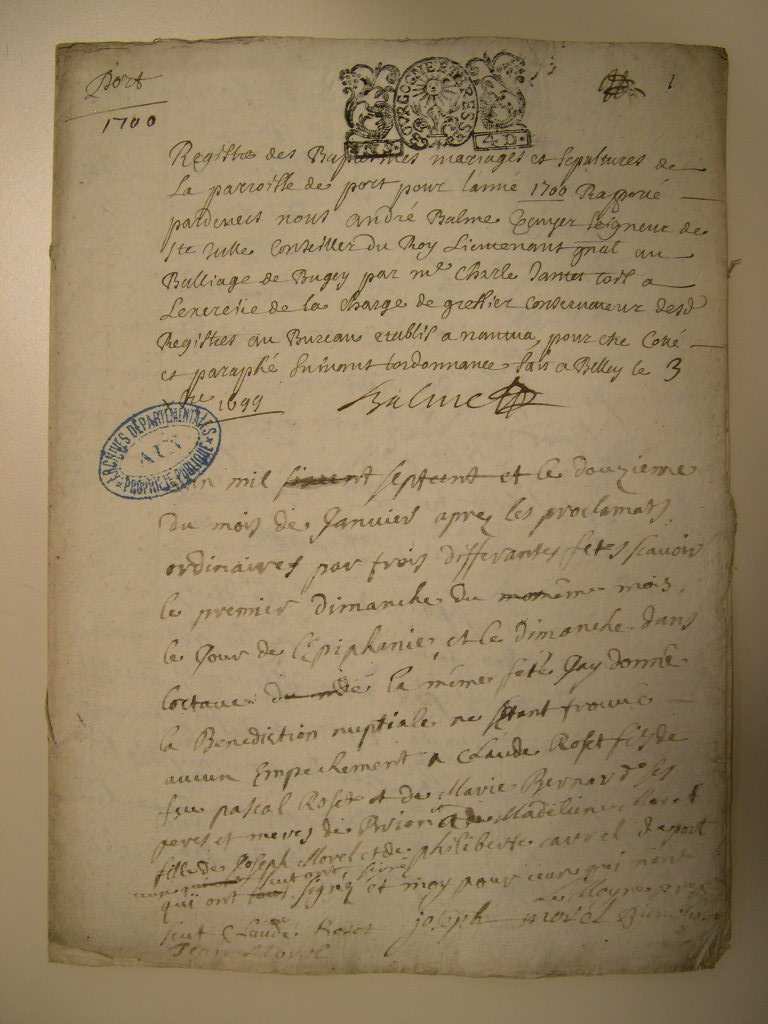 Port
1700
BOURGOGNE ET BRESSE
1
Registre des Baptemes mariages et sepultures de
La parroisse de port pour lannee 1700 Rapporté
pardevers nous andré Balme Ecuyer Seigneur de
ste Julle Conseiller du Roy Lieutenant gnal au
Balliage de Bugey par me Charle Jantet Comis a
Lexercice de la Charge de greffier Conservateur desd
Registres au Bureau etablis a nantua, pour etre Cotté
et paraphé suivant lordonnance fait a Belley le 3
1699 Balme
ARCHIVES DÉPARTEMENTALES
AIN
PROPRIÉTÉ PUBLIQUE
mil septcent et le douzieme
du mois de Janvier apres les proclamats
ordinaires par trois differantes fetes scavoir
le premier dimanche du même mois,
le Jour de l'Epiphanie, et le dimanche dans
loctave de la même fete Jay donné
la Benediction nuptiale ne setant trouvé
aucun Empechement a Claude Roset fils de
feu pascal Roset et de Marie Bernard ses
peres et meres de Brion et a Madeleine Morel
fille de Joseph Morel et de philiberte de port
qui ont signéz et moy pour ceux qui n'ont
sceu Claude Roset joseph morel
Jean Morel